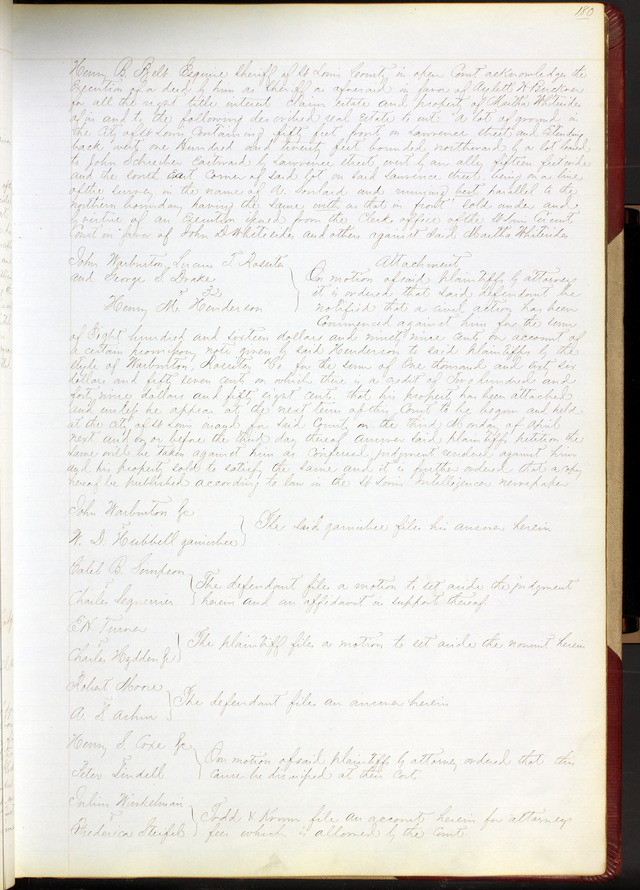 180
Henry B. Belt Esquire Sheriff of St Louis County in open Court acknowledges the
Execution of a deed by him as Sheriff as aforesaid in favor of H Buckner
for all the right title interest claim estate and property of Martha Whitesides
of in and to the following described real Estate to wit: "A lot of ground in
the City of St Louis Containing fifty feet front on Lawrence street and Extending
back west one Hundred and twenty feet bounded northward by a lot
to John Schreiber Eastward by Lawrence street, west by an alley fifteen feet wide
and the South East Corner of said lot on said Lawrence street being on a line
of the survey in the name of A. Soulard and running west parallel to the
northern boundary having the same width as that in front" Sold under and
by virtue of an Execution issued from the Clerks office of the St Louis Circuit
Court in favor of John D Whitesides and others against said Martha Whitesides
John Warburton, T. Rossiter Attachment
and George S. Drake On motion of said plaintiffs by attorney
vs it is ordered that said defendant be
Henry M. Henderson notified that a civil action has been
Commenced against him for the sum
of Eight hundred and sixteen dollars and ninety nine cents on account of
a certain promissory note given by said Henderson to said plaintiffs by the
style of Warburton, Rossiter & Co for the sum of One thousand and sixty six
dollars and fifty seven cents on which there is a credit of Two hundred and
forty nine dollars and fifty eight cents, that his property has been attached
and unless he appear at the next term of this Court to be begun and held
at the City of St Louis and for said County on the third Monday of April
next and on or before the third day thereof answer said plaintiffs petition the
same will be taken against him as Confessed, judgment rendered against him
and his property sold to satisfy the same and it is further ordered that a copy
hereof be published according to law in the St Louis Intelligencer newspaper
John Warburton &c
v The said garnishee files his answer herein
W. D. Hubbell garnishee
Caleb B. Simpson
v The defendant files a motion to set aside the judgment
Charles herein and an affidavit in support thereof
E K Turner
v The plaintiff files a motion to set aside the nonsuit herein
Charles Hydden &c
Robert Moore
v The defendant files an answer herein
A. S.
Henry S. Coxe &c On motion of said plaintiffs by attorney ordered that this
v
Peter Lindell Cause be dismissed at their Cost
Julius Winkelman Todd & Krum file an account herein for attorneys
v
Frederica fees which is allowed by the Court